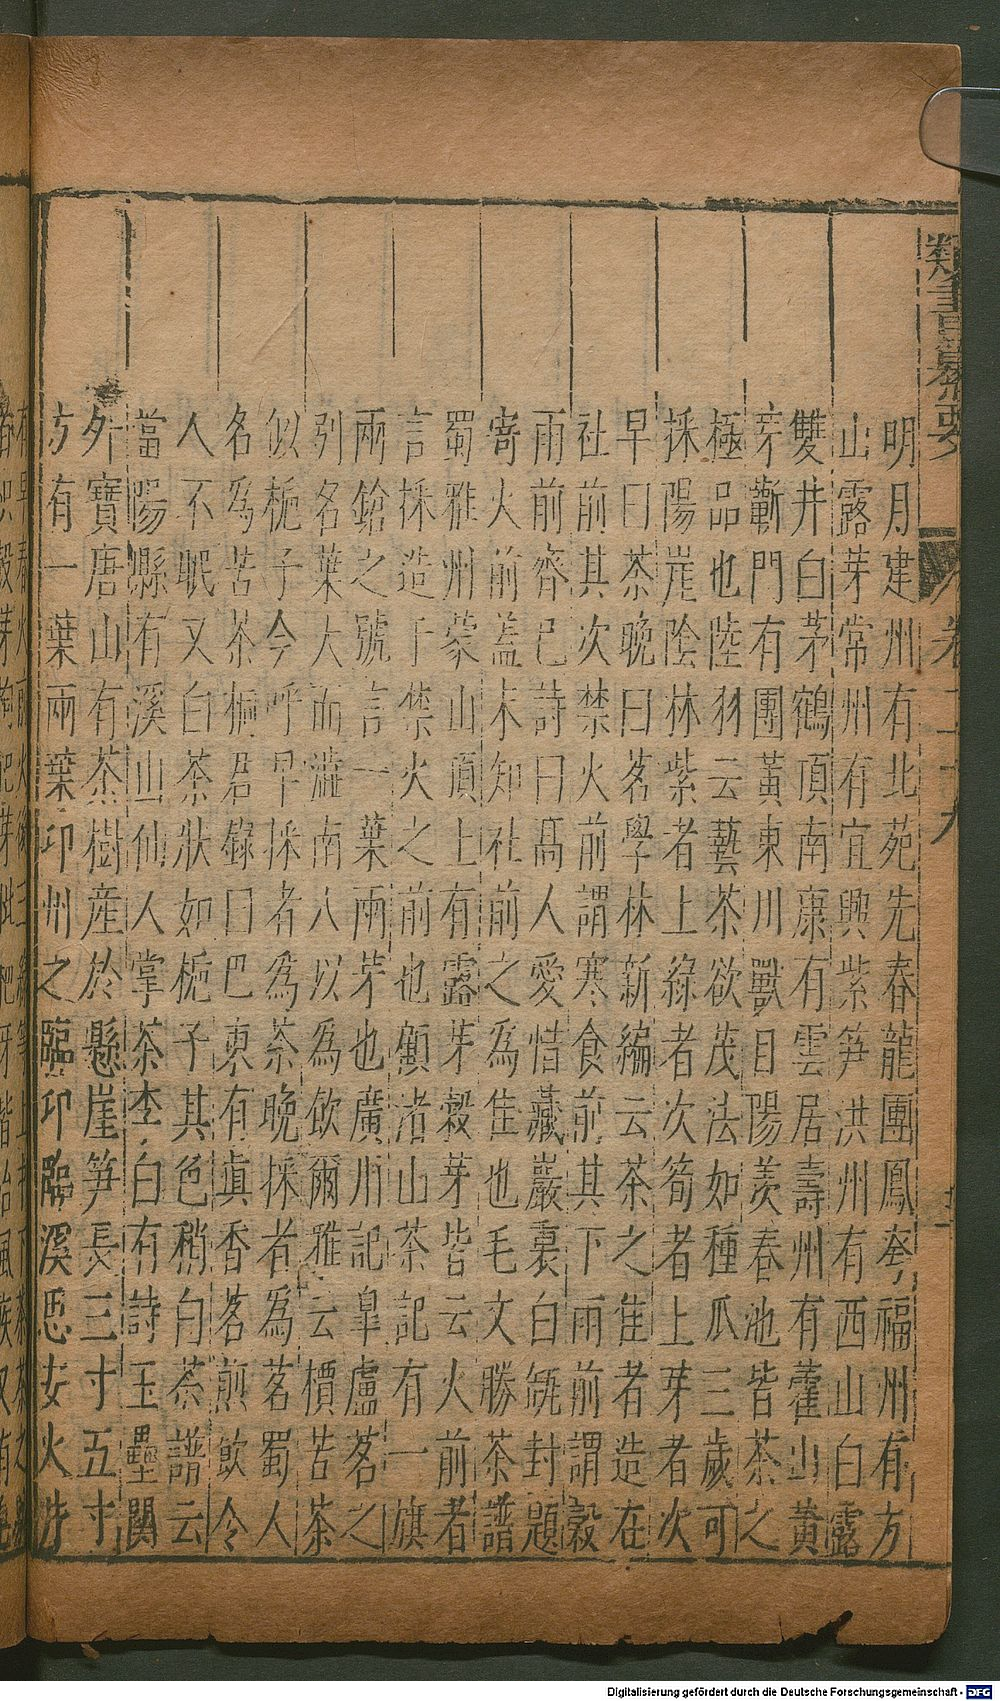 類書纂要
卷二十九
明月建州有北苑先春龍團鳳奓福州有方
山露芽常州有宜興紫笋洪州有西山白露
雙井白茅鶴頂南康有雲居壽州有藿山黃
芽蘄門有團黃東川獸目陽羨春池皆茶之
極品也陸羽云藝茶欲茂法如種瓜三歲可
採陽崖陰林紫者上綠者次筍者上芽者次
早曰茶晚曰茗學林新編云茶之佳者造在
社前其次禁火前謂寒食前其下雨前謂穀
雨前齊已詩曰高人愛惜藏巖裏白甀封題
寄火前盖未知社前之為佳也毛文勝茶譜
蜀雅州蒙山頂上有露芽穀芽皆云火前者
言採造于禁火之前也顧渚山茶記有一旗
兩鎗之號言一葉兩芽也廣川記皐盧茗之
别名葉大而澁南人以為飲爾雅云檟苦茶
似梔子今呼早採者為茶晚採者為茗蜀人
名為苦茶桐君錄曰巴東有眞香茗煎飲令
人不眠又白茶狀如梔子其色稍白茶譜云
當陽縣有溪山仙人掌茶李白有詩玉壘關
外寶唐山有茶樹産於懸崖笋長三寸五寸
方有一葉兩葉卭州之臨卭臨溪思安火井
Digitalisierung gefördert durch die Deutsche Forschungsgemeinschaft - DFG